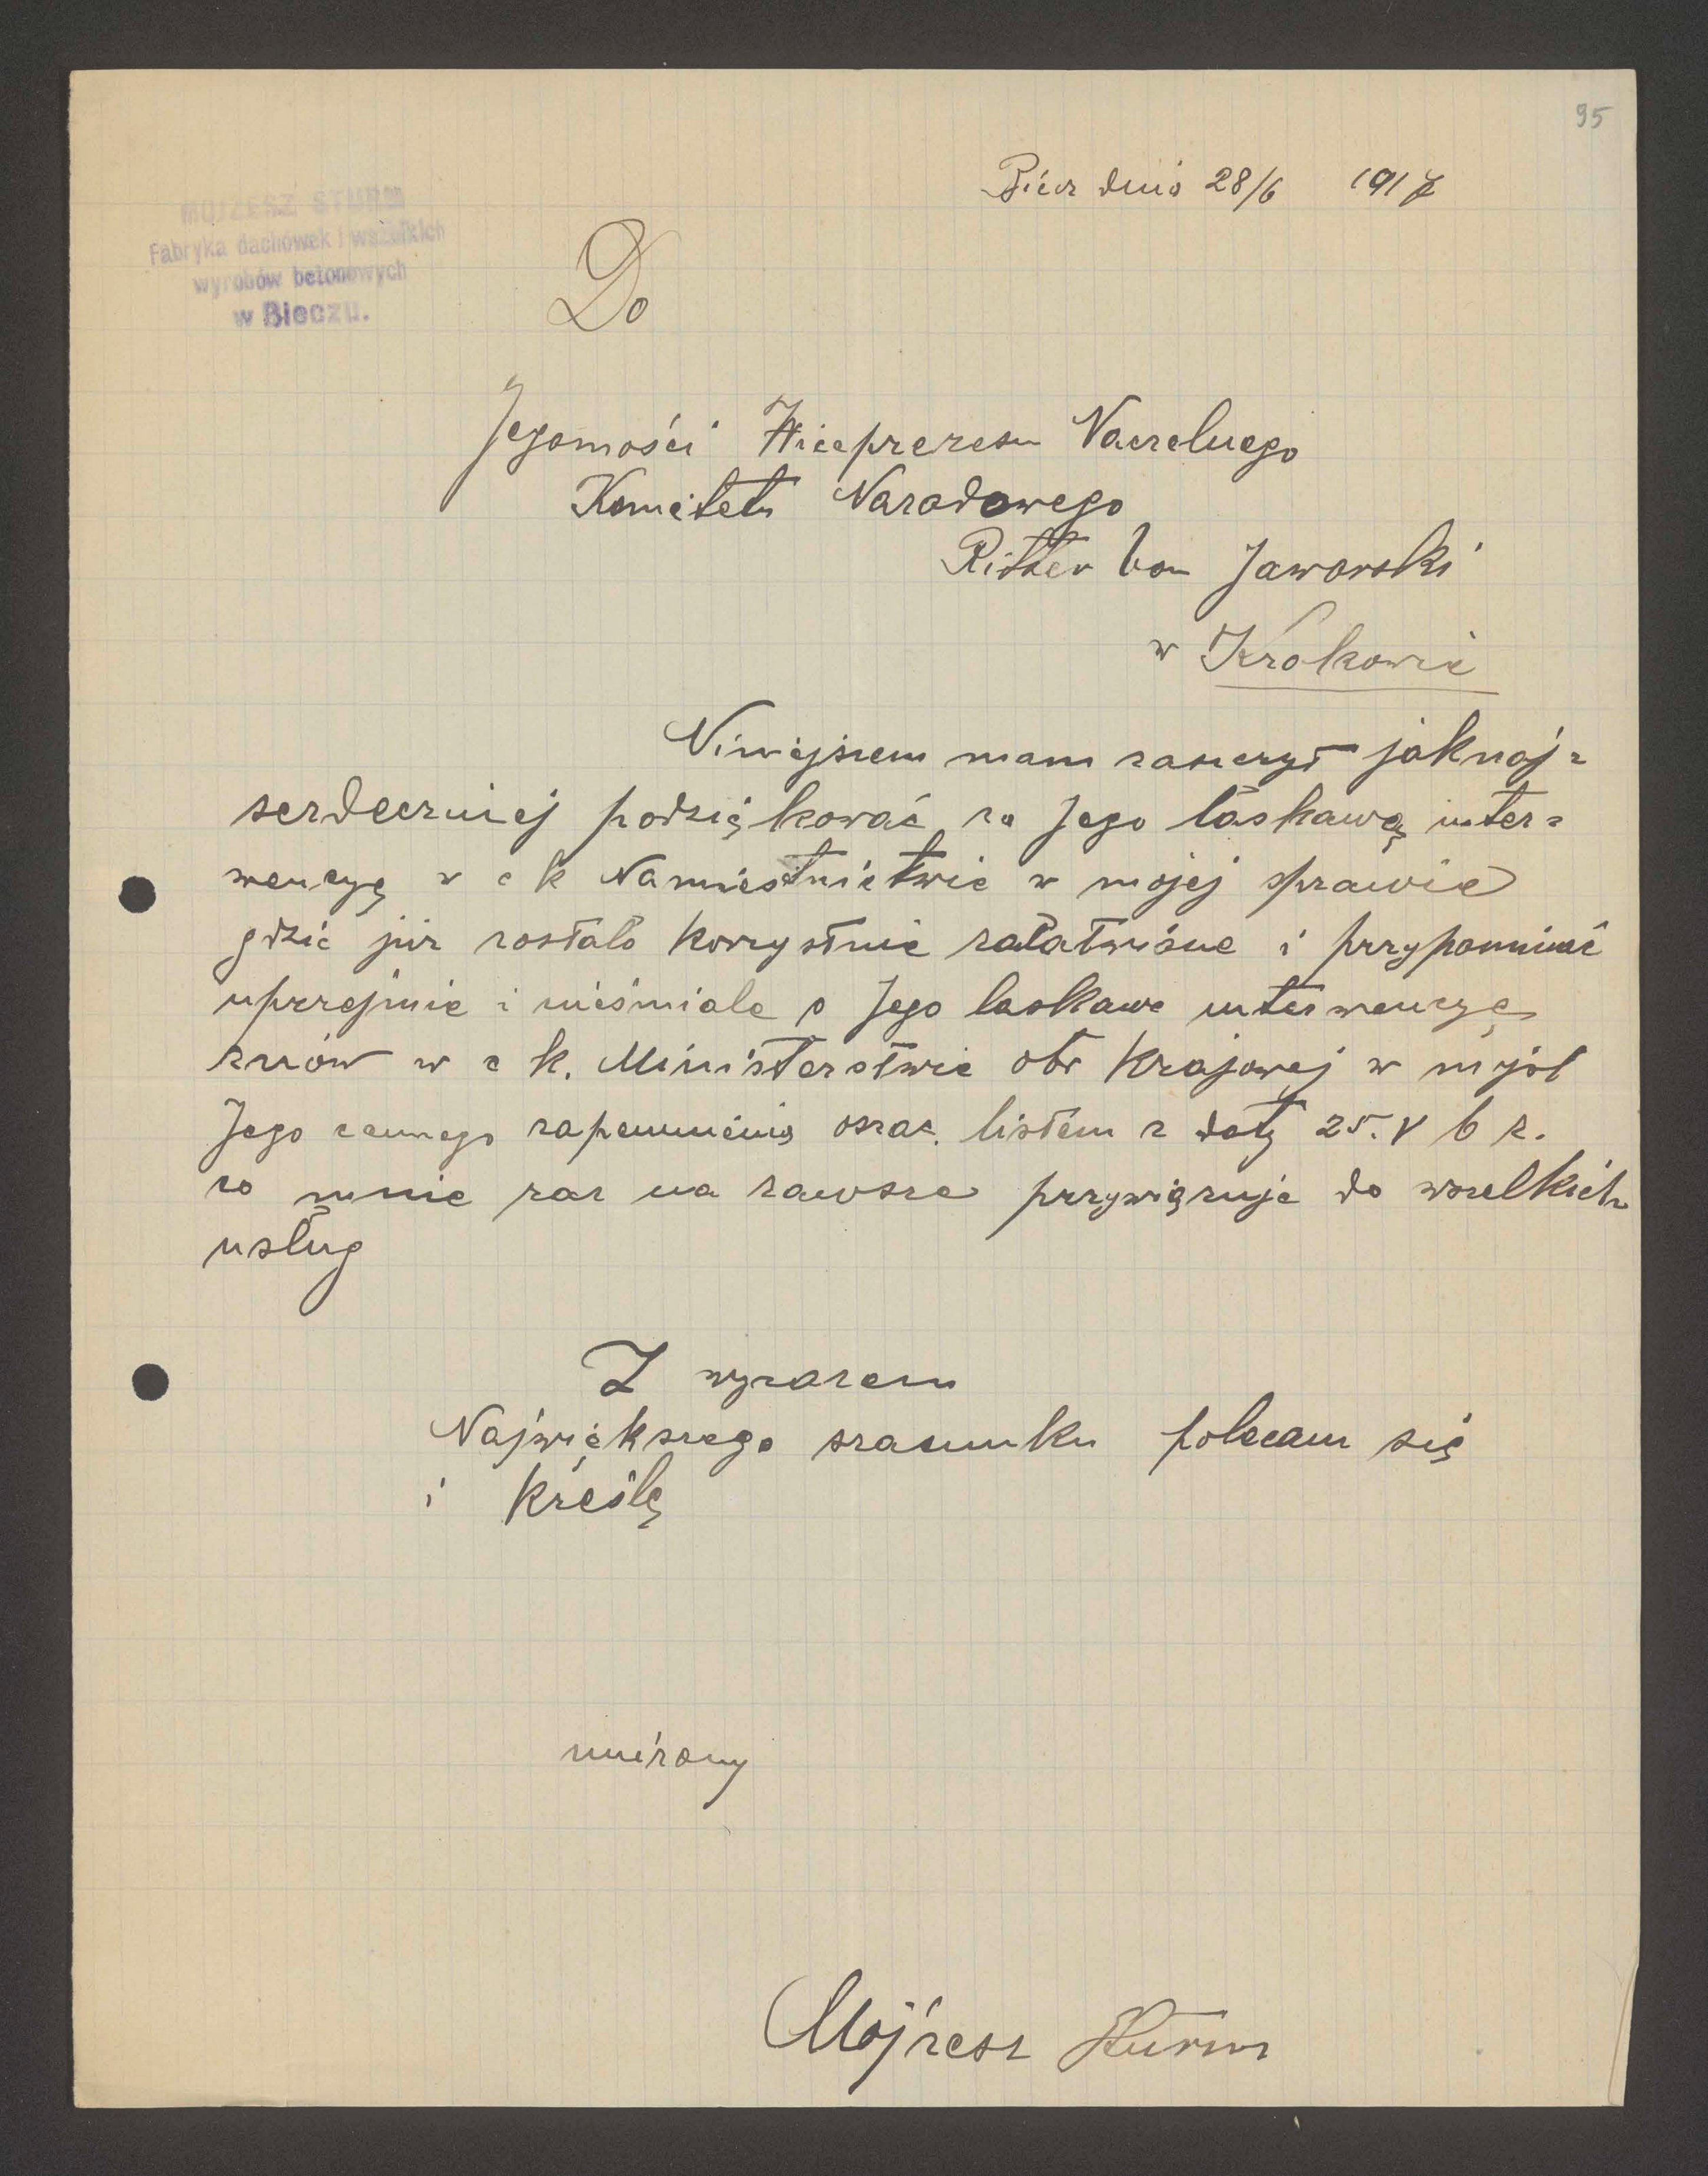 95
Biecz dnia 28/6 1917
MOJŻESZ STURM
Fabryka dachówek i wszelkich
wyrobów betonowych
w Bieczu.
Do
Jegomości Wiceprezesu Naczelnego
Komitetu Narodowego
Ritter von Jaworski
w Krakowie
Niniejszem mam zaszczyt jaknaj=
serdeczniej podziękować za Jego łaskawą inter=
wencyę w c k Namiestnictwie w mojej sprawie
gdzie już zostało korzystnie załatwione i przypominać
uprzejmie i nieśmiale o Jego laskawe interwencyę
znów w c k. Ministerstwie obr Krajowej w myśl
Jego cennego zapewnienia oraz listem z daty 25. V b r.
co mnie raz na zawsze przywiązuje do wszelkich
usług
Z wyrazem
Największego szacunku polecam się
i kreślę
uniżony
Mojżesz Sturm